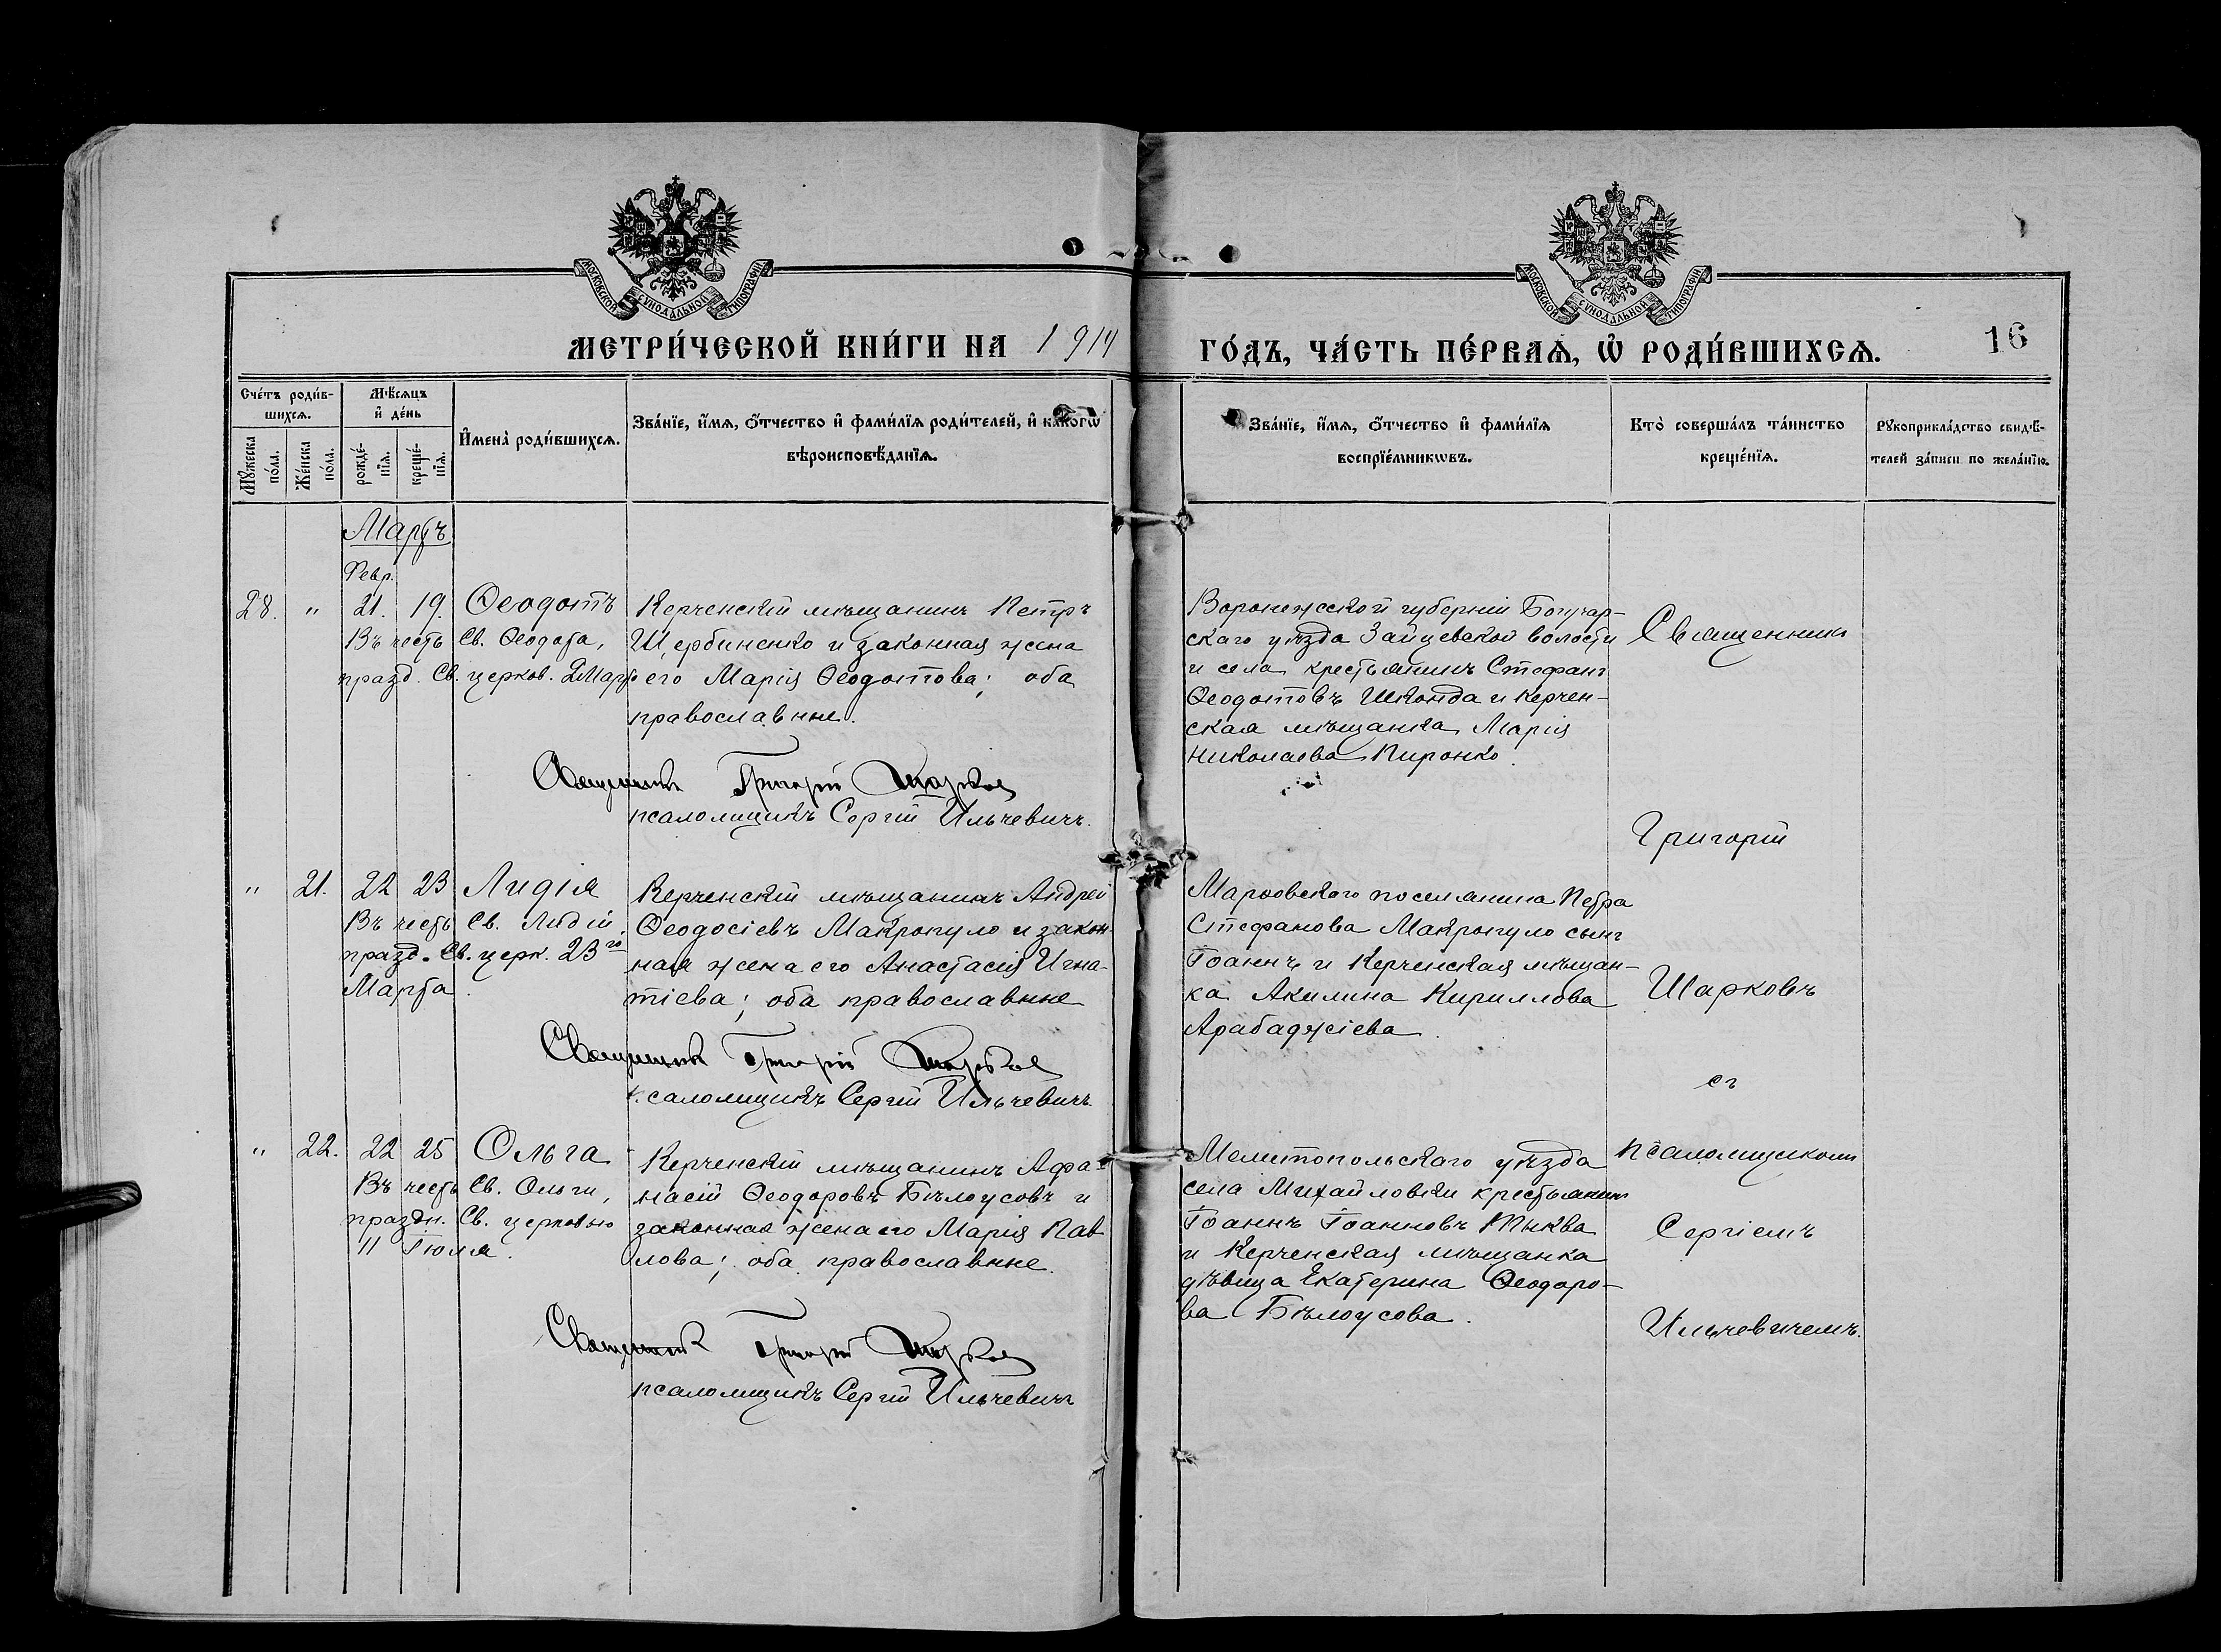 МОСКОВСКОЙ СѴНОДАЛЬНОЙ ТИПОГРАФІИ
МОСКОВСКОЙ СѴНОДАЛЬНОЙ ТИПОГРАФІИ
МЕТРИ́ЧЕСКОЙ КНИ́ГИ НА 1914
ГО́ДЪ, ЧА́СТЬ ПЕ́РВАѦ, Ѡ҆ РОДИ́ВШИХСѦ.
16
Сче́тъ роди́в-
шихсѧ.
Мꙋ́жеска
по́ла.
Же́нска
по́ла.
Мѣ́сѧцъ
и҆ де́нь
рожде́-
нїѧ.
креще́-
нїѧ.
И҆мена̀ роди́вшихсѧ.
Зва́нїе, и҆́мѧ, ѻ҆́тчество и҆ фами́лїѧ роди́телей, и҆ како́гѡ
вѣроисповѣ́данїѧ.
Зва́нїе, и҆́мѧ, ѻ҆́тчество и҆ фами́лїѧ
воспрїе́мникѡвъ.
Кто̀ соверша́лъ та́инство
креще́нїѧ.
Рꙋкоприкла́дство свидѣ́-
телей за́писи по жела́нїю.
Мартъ
Февр.
28. " 21. 19. Ѳеодотъ
Въ честь Св. Ѳеодота,
празд. Св. церков. 2 Марта
Керченскій мѣщанинъ Петръ
Щербиненко и законная жена
его Марія Ѳеодотова; оба
православные.
Священникъ Григорій Шарковъ
псаломщикъ Сергій Ильчевичъ.
Воронежской губерніи Богучар-
скаго уѣзда Зайцевской волости
и села крестьянинъ Стефанъ
Ѳеодотовъ Шконда и Керчен-
ская мѣщанка Марія
Николаева Пиронко.
Священникъ
Григорій
" 21. 22 23 Лидія
Въ честь Св. Лидіи,
празд. Св. церк. 23го
Марта.
Керченскій мѣщанинъ Андрей
Ѳеодосіевъ Макропуло и закон-
ная жена его Анастасія Игна-
тіева; оба православные
Священникъ Григорій Шарковъ
псаломщикъ Сергій Ильчевичъ.
Марфовскаго поселянина Петра
Стефанова Макропуло сынъ
Іоаннъ и Керченская мѣщан-
ка Акилина Кириллова
Арабаджіева.
Шарковъ
съ
" 22. 22 25 Ольга
Въ честь Св. Ольги,
праздн. Св. церковью
11 Іюля.
Керченскій мѣщанинъ Афа-
насій Ѳеодоровъ Бѣлоусовъ и
законная жена его Марія Пав
лова; оба православные.
Священникъ Григорій Шарковъ
псаломщикъ Сергій Ильчевичъ
Мелитопольскаго уѣзда
села Михайловки крестьянинъ
Іоаннъ Іоанновъ Тыква
и Керченская мѣщанка
дѣвица Екатерина Ѳеодоро-
ва Бѣлоусова.
псаломщикомъ
Сергіемъ
Ильчевичемъ.